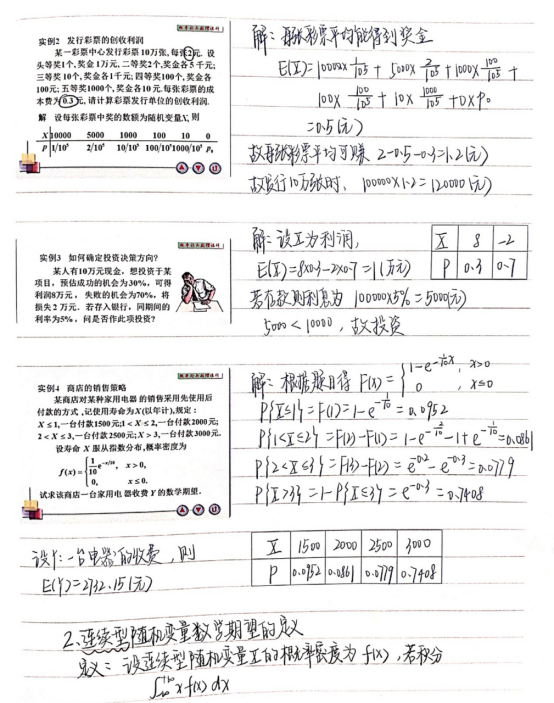 概率论与数理统计
实例2 发行彩票的创收利润
某一彩票中心发行彩票 10万张, 每张2元. 设
头等奖1个, 奖金 1万元, 二等奖2个,奖金各 5 千元;
三等奖 10个, 奖金各1千元; 四等奖100个, 奖金各
100元; 五等奖1000个, 奖金各10 元. 每张彩票的成
本费为 0.3 元, 请计算彩票发行单位的创收利润.
解 设每张彩票中奖的数额为随机变量X, 则
X 10000 5000 1000 100 10 0
P 1/10⁵ 2/10⁵ 10/10⁵ 100/10⁵ 1000/10⁵ p₀
解: 每张彩票平均能得到奖金
E(X)=10000×1/10⁵ + 5000×2/10⁵ + 1000×100/10⁵ +
100×100/10⁵ + 10×1000/10⁵ + 0×P₀
=0.5(元)
故每张彩票平均可赚 2-0.5-0.3=1.2(元)
故发行10万张时, 100000×1.2=120000(元)
概率论与数理统计
实例3 如何确定投资决策方向?
某人有10万元现金, 想投资于某
项目, 预估成功的机会为 30%, 可得
利润8万元, 失败的机会为70%, 将
损失 2 万元. 若存入银行, 同期间的
利率为5%, 问是否作此项投资?
解: 设X为利润,
E(X)=8×0.3-2×0.7=1(万元)
X 8 -2
P 0.3 0.7
若存款则利息为 100000×5%=5000(元)
5000<10000, 故投资
概率论与数理统计
实例4 商店的销售策略
某商店对某种家用电器的销售采用先使用后
付款的方式, 记使用寿命为X(以年计), 规定:
X ≤ 1, 一台付款1500元; 1 < X ≤ 2, 一台付款2000元;
2 < X ≤ 3, 一台付款2500元; X > 3, 一台付款3000元.
设寿命 X 服从指数分布, 概率密度为
f(x) = { 1/10 e^(-x/10), x > 0,
0, x ≤ 0.
试求该商店一台家用电器收费 Y 的数学期望.
解: 根据题目得 F(x)= { 1-e^(-1/10 x), x>0
0, x≤0
P{X≤1}=F(1)=1-e^(-1/10)=0.0952
P{1<X≤2}=F(2)-F(1)=1-e^(-2/10)-1+e^(-1/10)=0.0861
P{2<X≤3}=F(3)-F(2)=e^(-0.2)-e^(-0.3)=0.0779
P{X>3}=1-P{X≤3}=e^(-0.3)=0.7408
设Y:一台电器的收费, 则
E(Y)=2732.15(元)
X 1500 2000 2500 3000
P 0.0952 0.0861 0.0779 0.7408
2.连续型随机变量数学期望的定义
定义: 设连续型随机变量X的概率密度为 f(x), 若积分
∫_{-∞}^{+∞} x f(x) dx